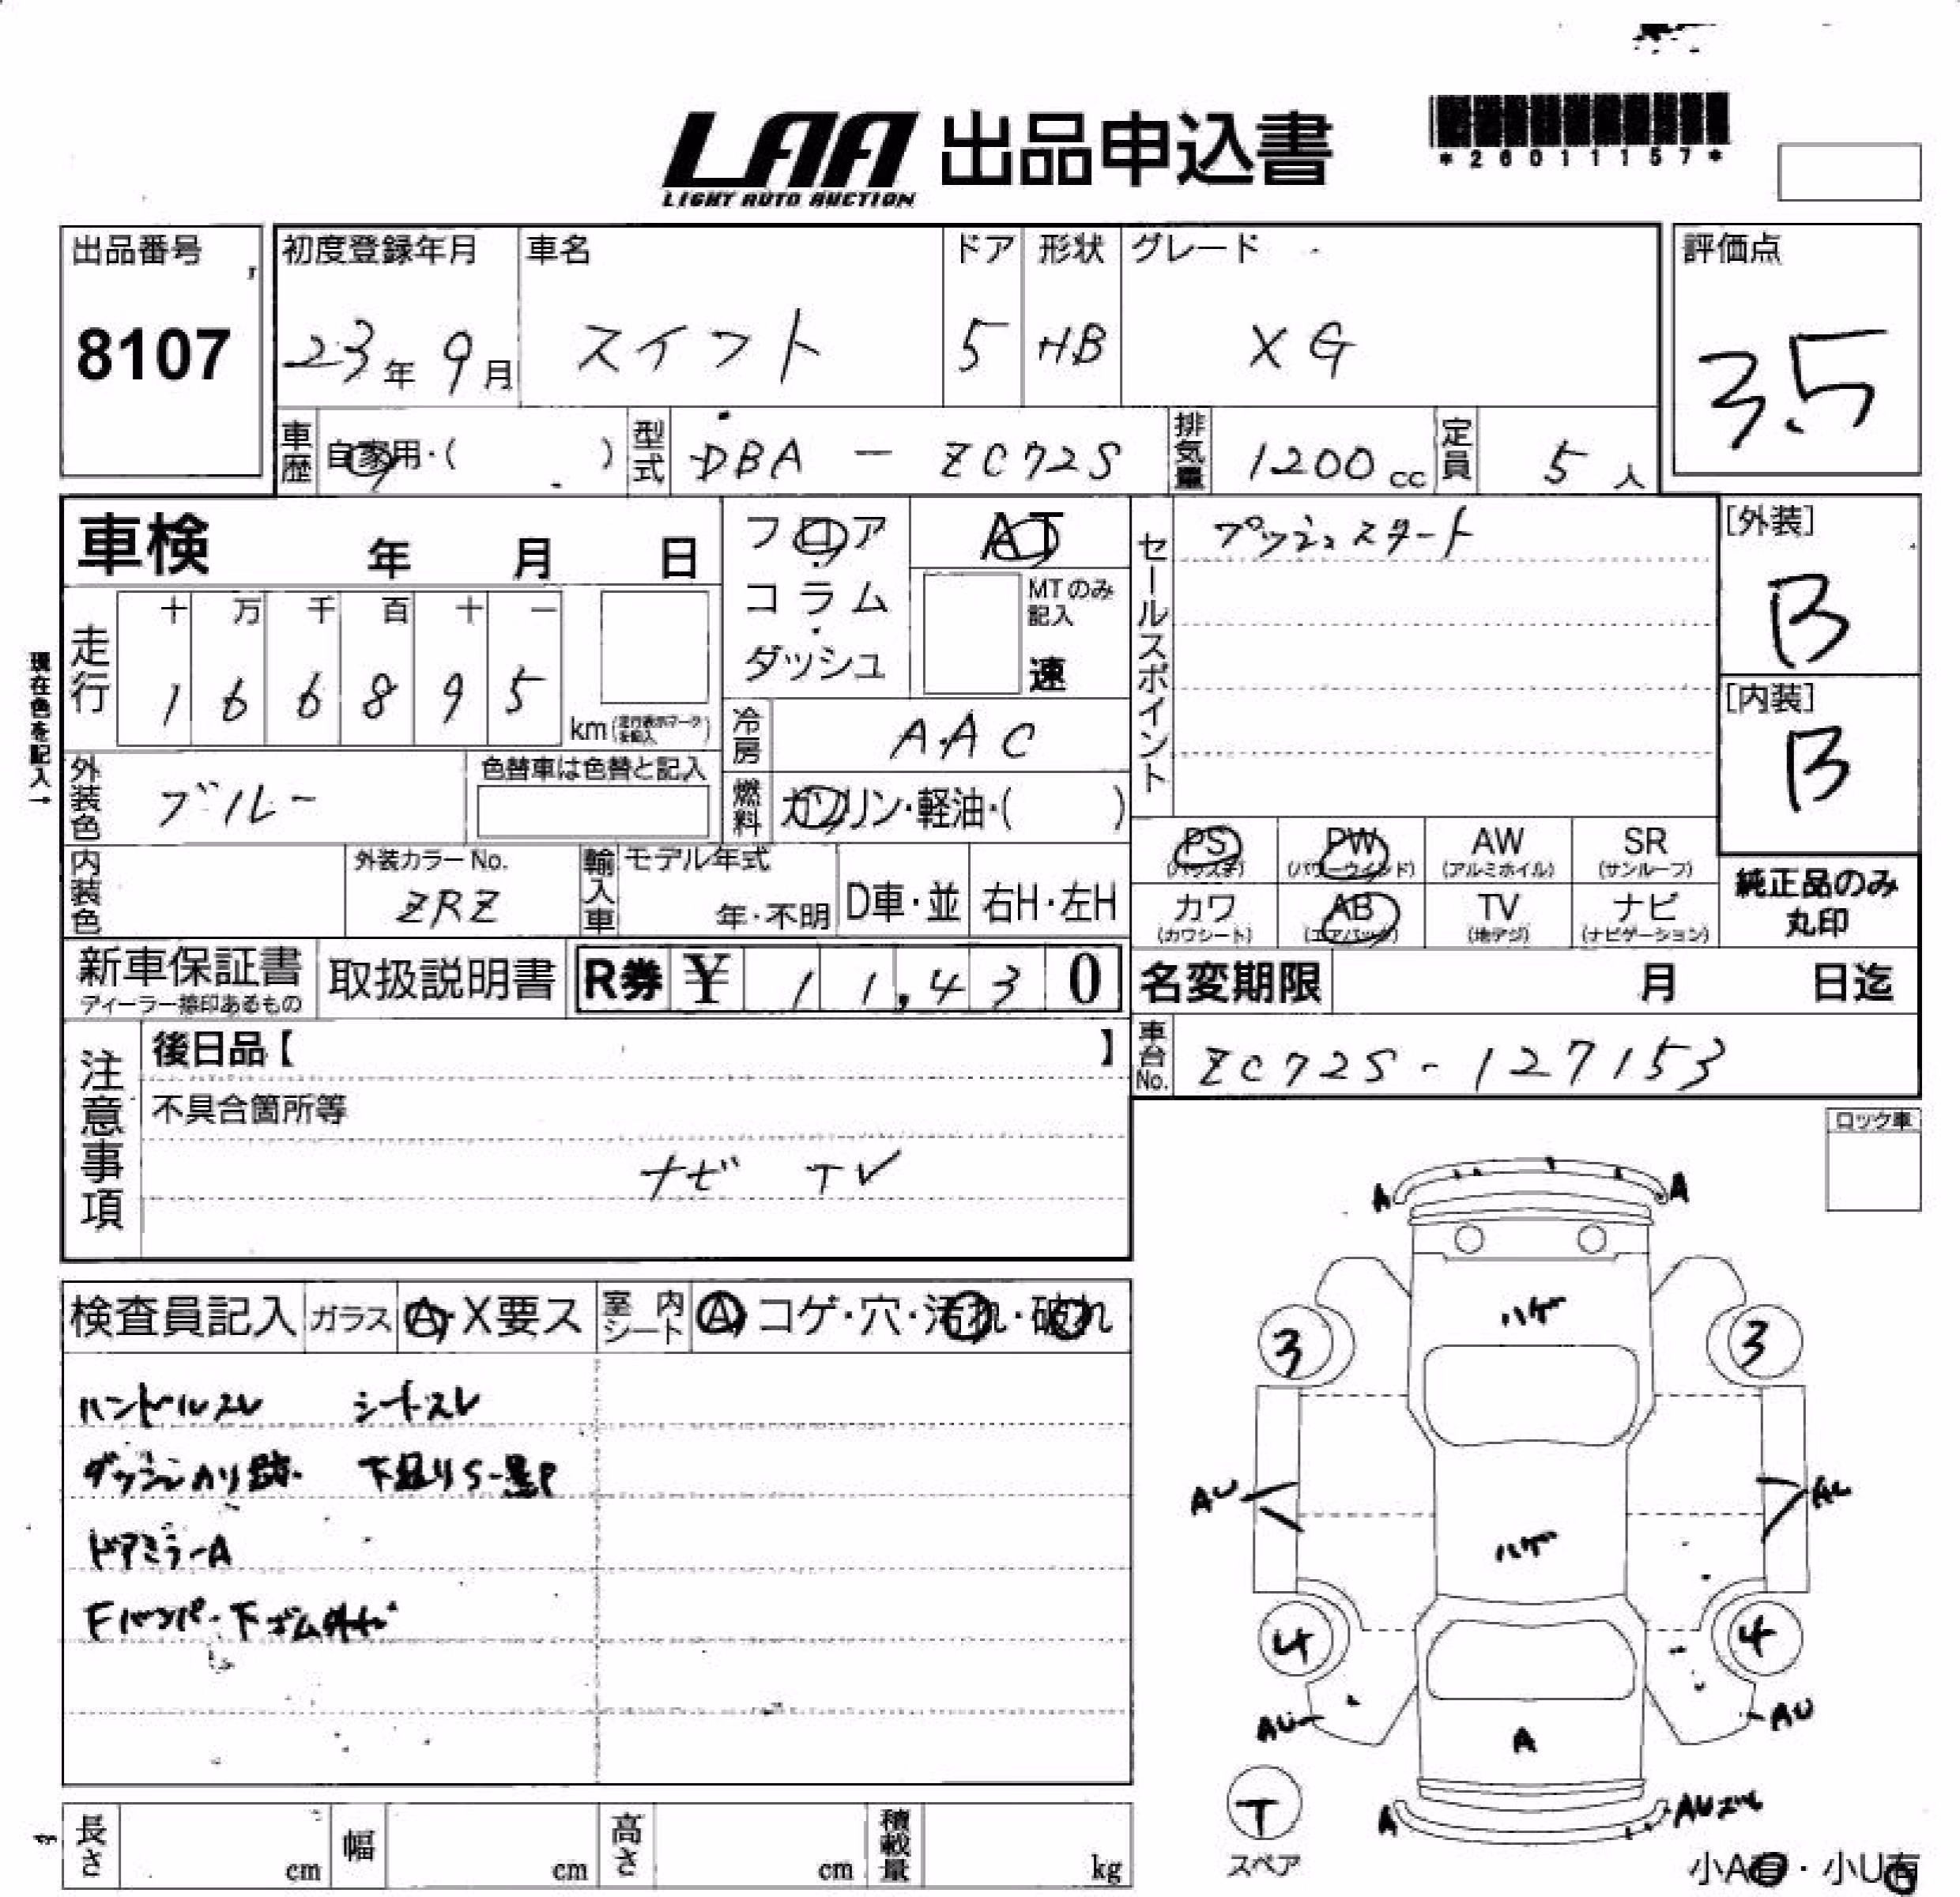 LAA 出品申込書
LIGHT AUTO AUCTION
*26011157*
出品番号
8107
初度登録年月
23年 9月
車名
スイフト
ドア
5
形状
HB
グレード
XG
評価点
3.5
車歴 自家用・( )
型式 DBA - ZC72S
排気量 1200cc
定員 5人
車検 年 月 日
フロア・コラム・ダッシュ
AT
MTのみ記入
速
セールスポイント
プッシュスタート
[外装]
B
[内装]
B
現在色を記入→
走行
十 万 千 百 十 一
1 6 6 8 9 5
km(走行表示マークを記入)
冷房 AAC
外装色 ブルー
色替車は色替と記入
燃料 ガソリン・軽油・( )
PS (パワステ)
PW (パワーウィンド)
AW (アルミホイル)
SR (サンルーフ)
カワ (カワシート)
AB (エアバック)
TV (地デジ)
ナビ (ナビゲーション)
純正品のみ丸印
内装色
外装カラーNo.
ZRZ
輸入車
モデル年式
年・不明
D車・並
右H・左H
新車保証書
ディーラー捺印あるもの
取扱説明書
R券 ¥ 11,430
名変期限 月 日迄
車台No. ZC72S-127153
注意事項
後日品【 】
不具合箇所等
ナビ TV
ロック車
検査員記入
ガラス A・X要ス
室内シート A・コゲ・穴・汚れ・破れ
ハンドルスレ シートスレ
ダッシュカリ跡 下廻りS-黒P
ドアミラーA
Fバンパー下ゴム外れ
A A
ハゲ
3 3
AU AU
ハゲ
4 4
AU AU
A
A AUズレ
T
スペア
小A有・小U有
長さ cm
幅 cm
高さ cm
積載量 kg